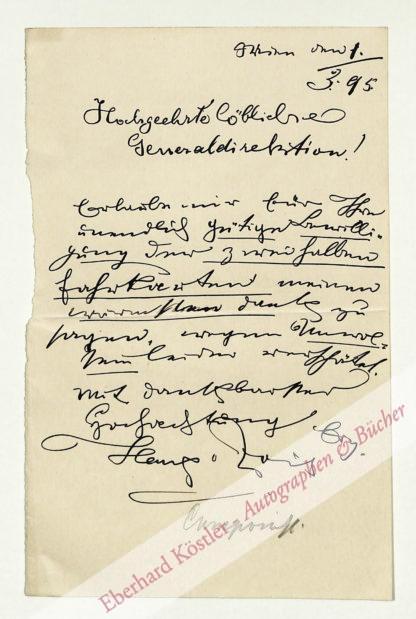 Wien den 1.
3. 95
Hochgeehrte löbliche
Generaldirektion!
Erlaube mir für Ihre
unendlich gütige Bewilli-
gung der zwei halben
Fahrkarten meinen
wärmsten Dank zu
sagen, wegen Unwol-
sein leider verspätet.
Mit dankbarster
Hochachtung
Componist.
Eberhard Köstler Autographen & Bücher